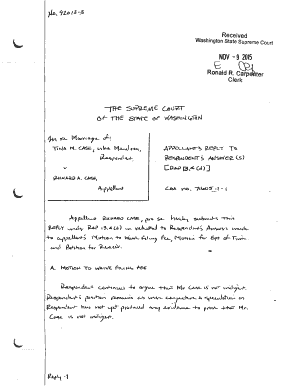 No. 92013-5
Received
Washington State Supreme Court
NOV - 9 2015
Ronald R. Carpenter
Clerk
THE SUPREME COURT
OF THE STATE OF WASHINGTON
In re Marriage of:
TINA M. CASE,
Respondent,
v
RICHARD A. CASE,
Appellant
APPELLANT'S REPLY TO
RESPONDENT'S ANSWER(S)
[RAP 13.4(d)]
CASE NO.
Appellant RICHARD CASE, pro se hereby submits this
REPLY under RAP 13.4(d) in related to Respondent's Answers made
to appellant's Motion to Waive Filing Fee, Motion for Ext of Time
and Petition for Review.
A. MOTION TO WAIVE FILING FEE
Respondent continues to argue that Mr Case is not indigent.
Respondent's position remains as mere conjecture & speculation as
Respondent has not yet produced any evidence to prove that Mr.
Case is not indigent.
Reply - 1